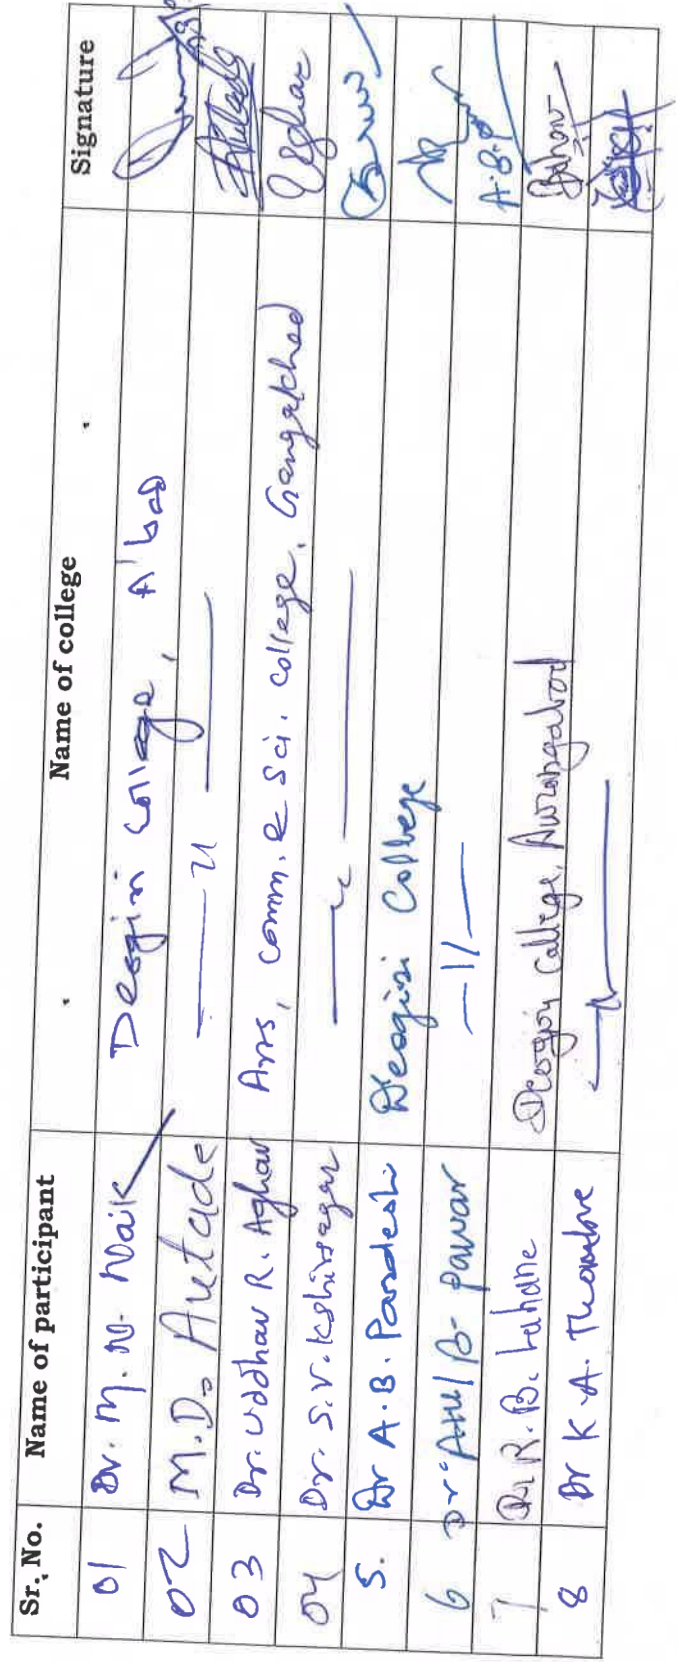 Sr. No. Name of participant Name of college Signature
01 Dr. M. N. Naik Deogiri College, A'bad
02 M.D. Autade —— 〃 ——
03 Dr. Uddhav R. Aghav Arts, comm. & Sci. college, Gangakhed
04 Dr. S.V. Kshirsagar —— 〃 ——
5. Dr A.B. Pardeshi Deogiri College
6 Dr. Atul B. Pawar —11— A.B.P
7 Dr R. B. Lahane Deogiri College, Aurangabad
8 Dr K.A. Thombre —— 〃 ——